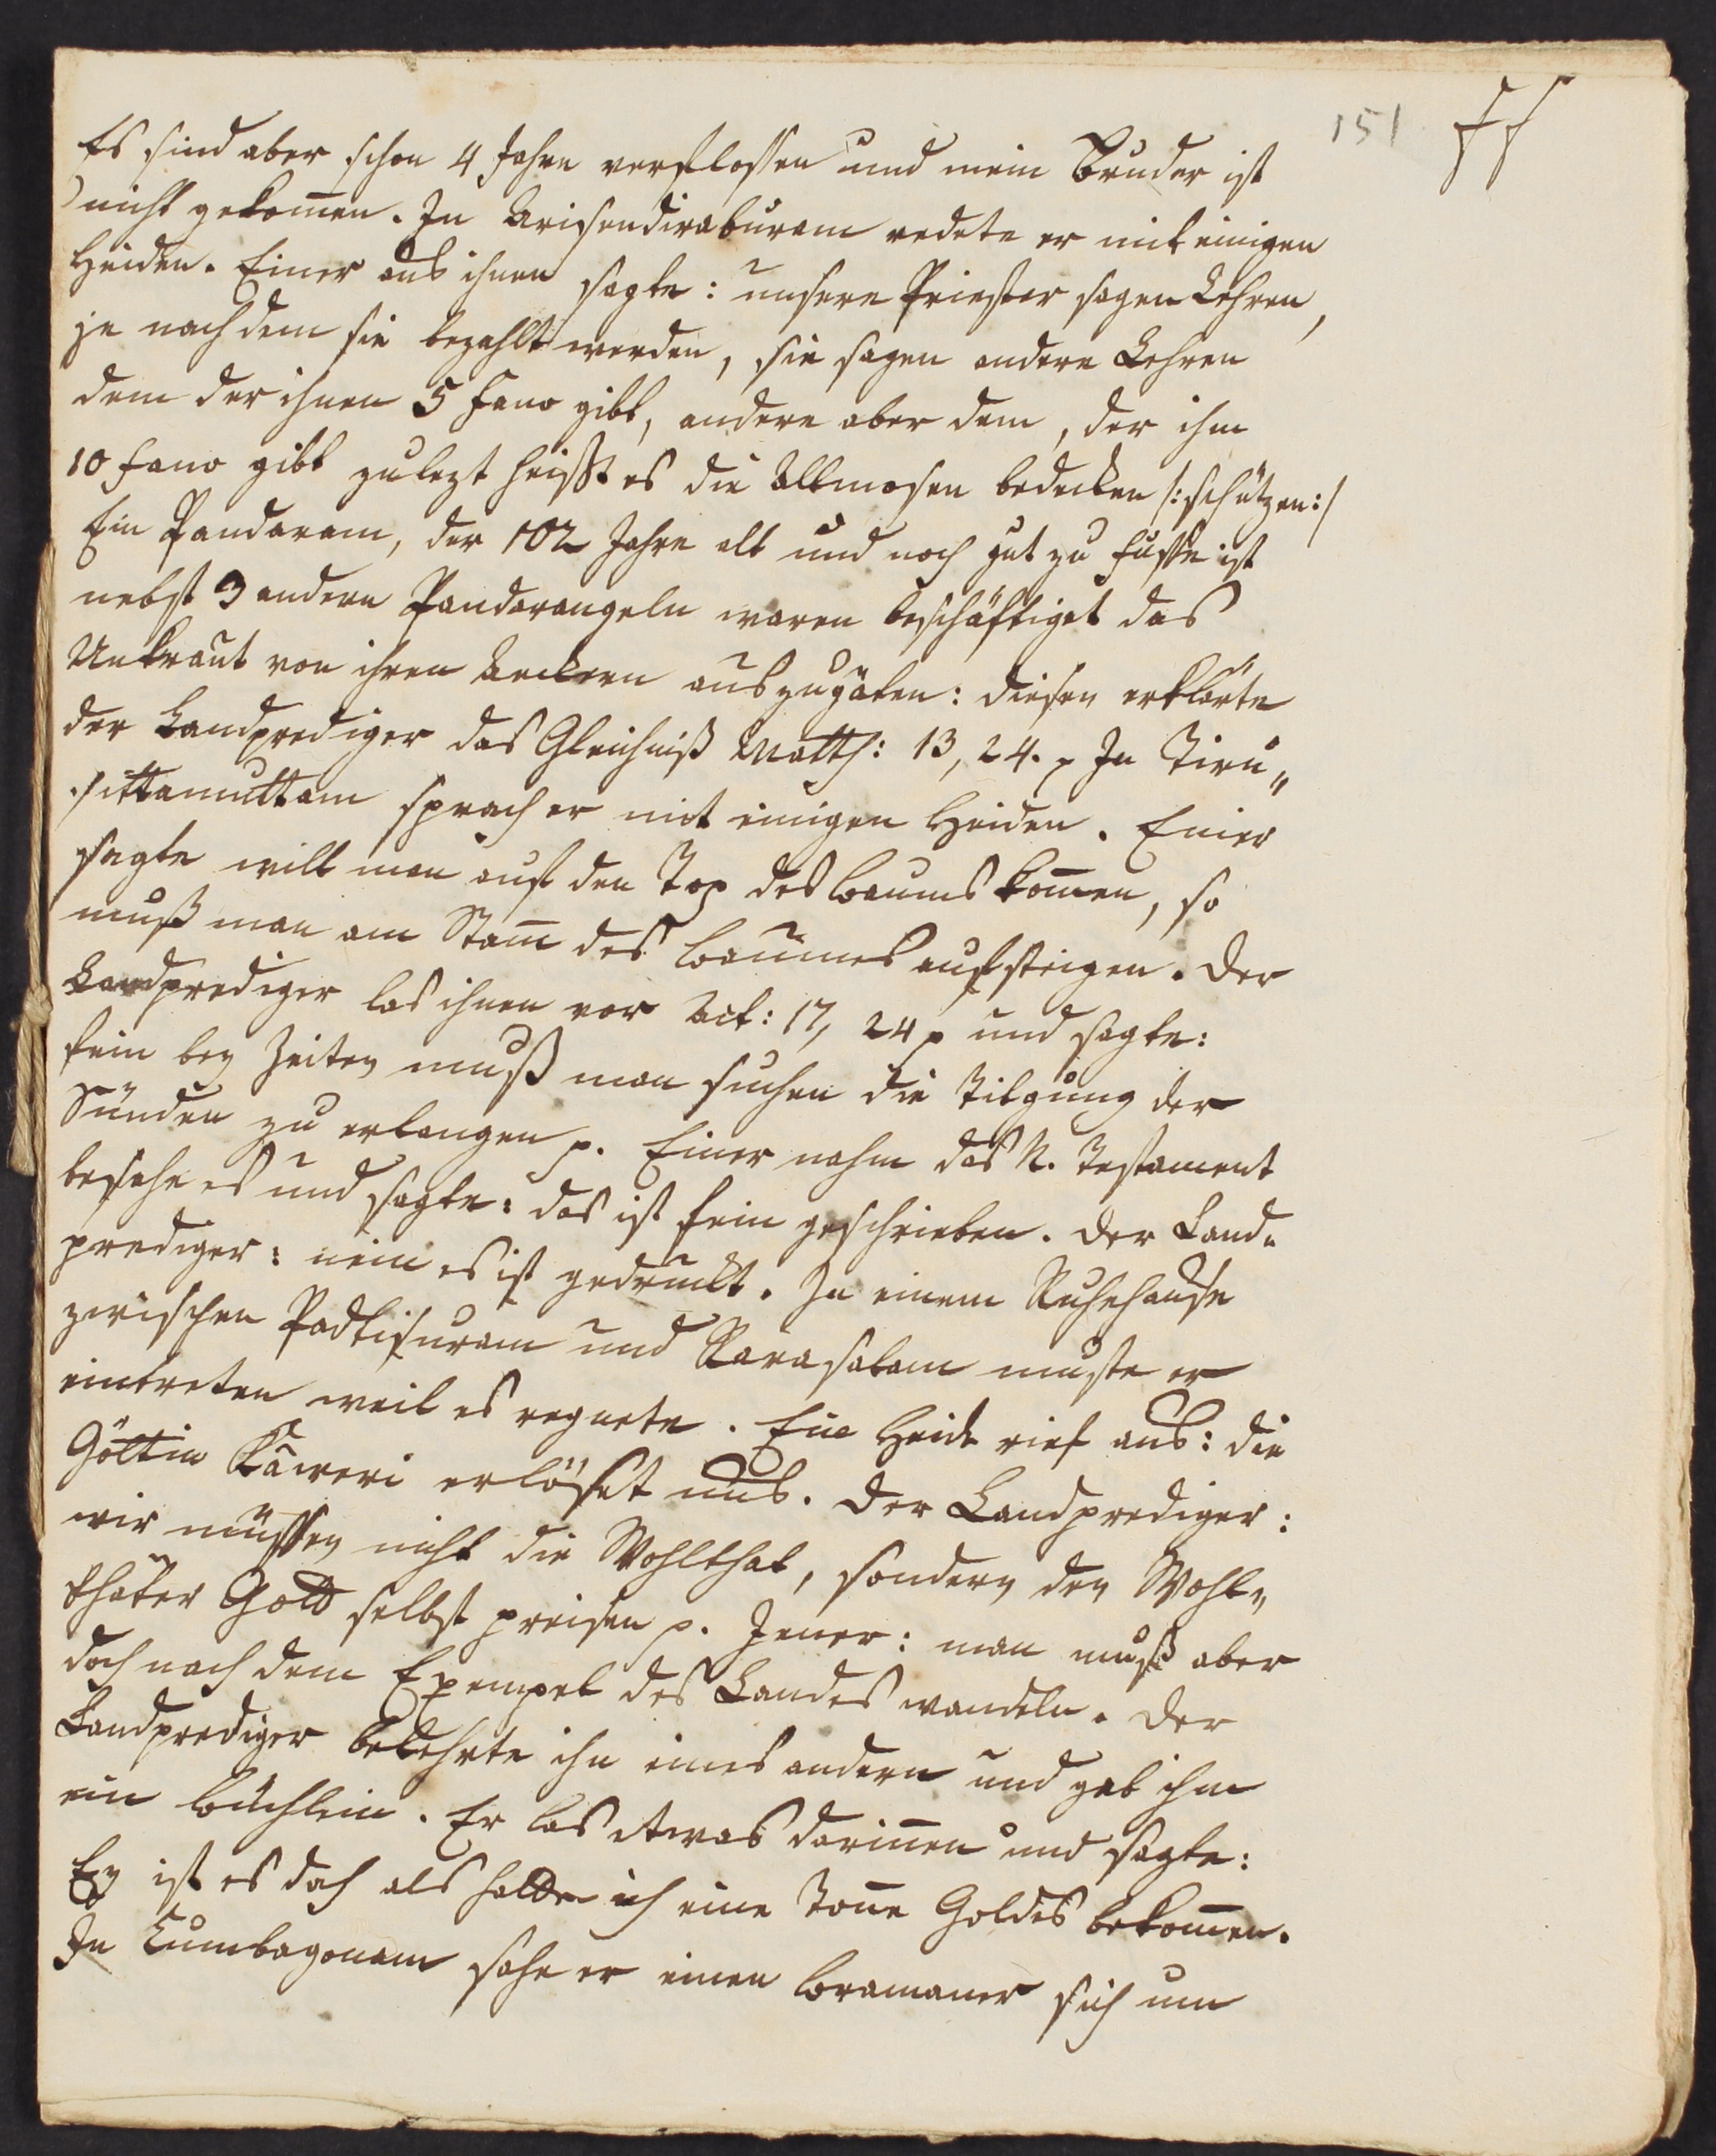 151 ff
Es sind aber schon 4 Jahre verflossen und mein Bruder ist
nicht gekom̄en. In Arisendiraburam redete er mit einigen
Heiden. Einer aus ihnen sagte: unsere Priester sagen Lehren,
je nach dem sie bezahlt werden, sie sagen andere Lehren
dem der ihnen 5 Fano gibt, andere aber dem, der ihm
10 Fano gibt zulezt heisst es die Allmosen bedecken /:schützen:/
Ein Pandaram, der 102 Jahre alt und noch gut zu Fusse ist
nebst 3 andern Pandarangeln waren beschäftiget das
Unkraut von ihren Aeckern auszugäten: diesen erklärte
der Landprediger das Gleichniß Matth: 13, 24. p In Tiru„
sittamuttam sprach er mit einigen Heiden. Einer
sagte will man auf den Top des Baums kom̄en, so
muß man am Stam̄ des Baumes aufsteigen. Der
Landprediger las ihnen vor Act: 17, 24 p und sagte:
fein bey Zeiten muß man suchen die Tilgung der
Sünden zu erlangen p. Einer nahm das N. Testament
besahe es und sagte: das ist fein geschrieben. Der Land„
prediger: nein es ist gedruckt. In einem Ruhehause
zwischen Padtisuram und Rarasalam muste er
eintreten weil es regnete. Ein Heide rief aus: die
Göttin Kâweri erlöset uns. Der Landprediger:
wir müssen nicht die Wohlthat, sondern den Wohl„
thäter Gott selbst preisen p. Jener: man muß aber
doch nach dem Exempel des Landes wandeln. Der
Landprediger belehrte ihn eines andern und gab ihm
ein Büchlein. Er las etwas darin̄en und sagte:
Ey ist es doch als hätte ich eine Ton̄e Goldes bekom̄en.
In Cumbagonam sahe er einen Bramaner sich um